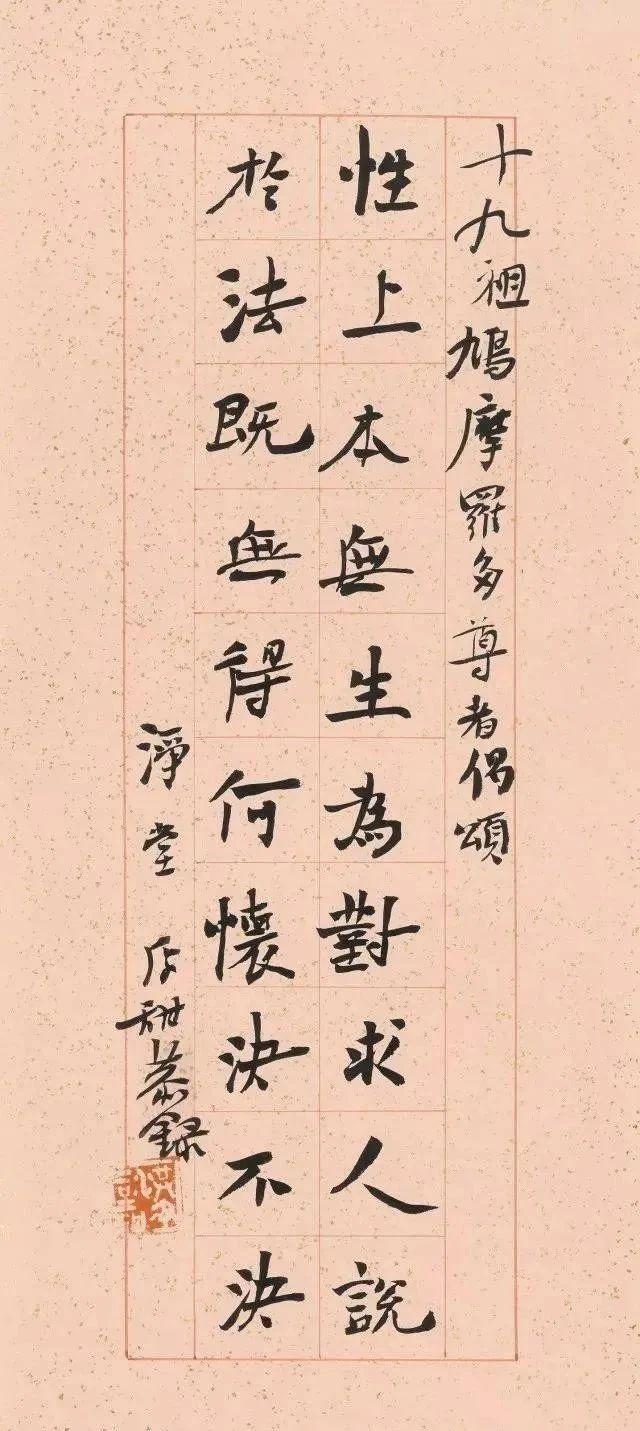 十九祖鳩摩羅多尊者偈頌
性上本無生為對求人說
於法既無得何懷決不決
淨堂 甜恭錄